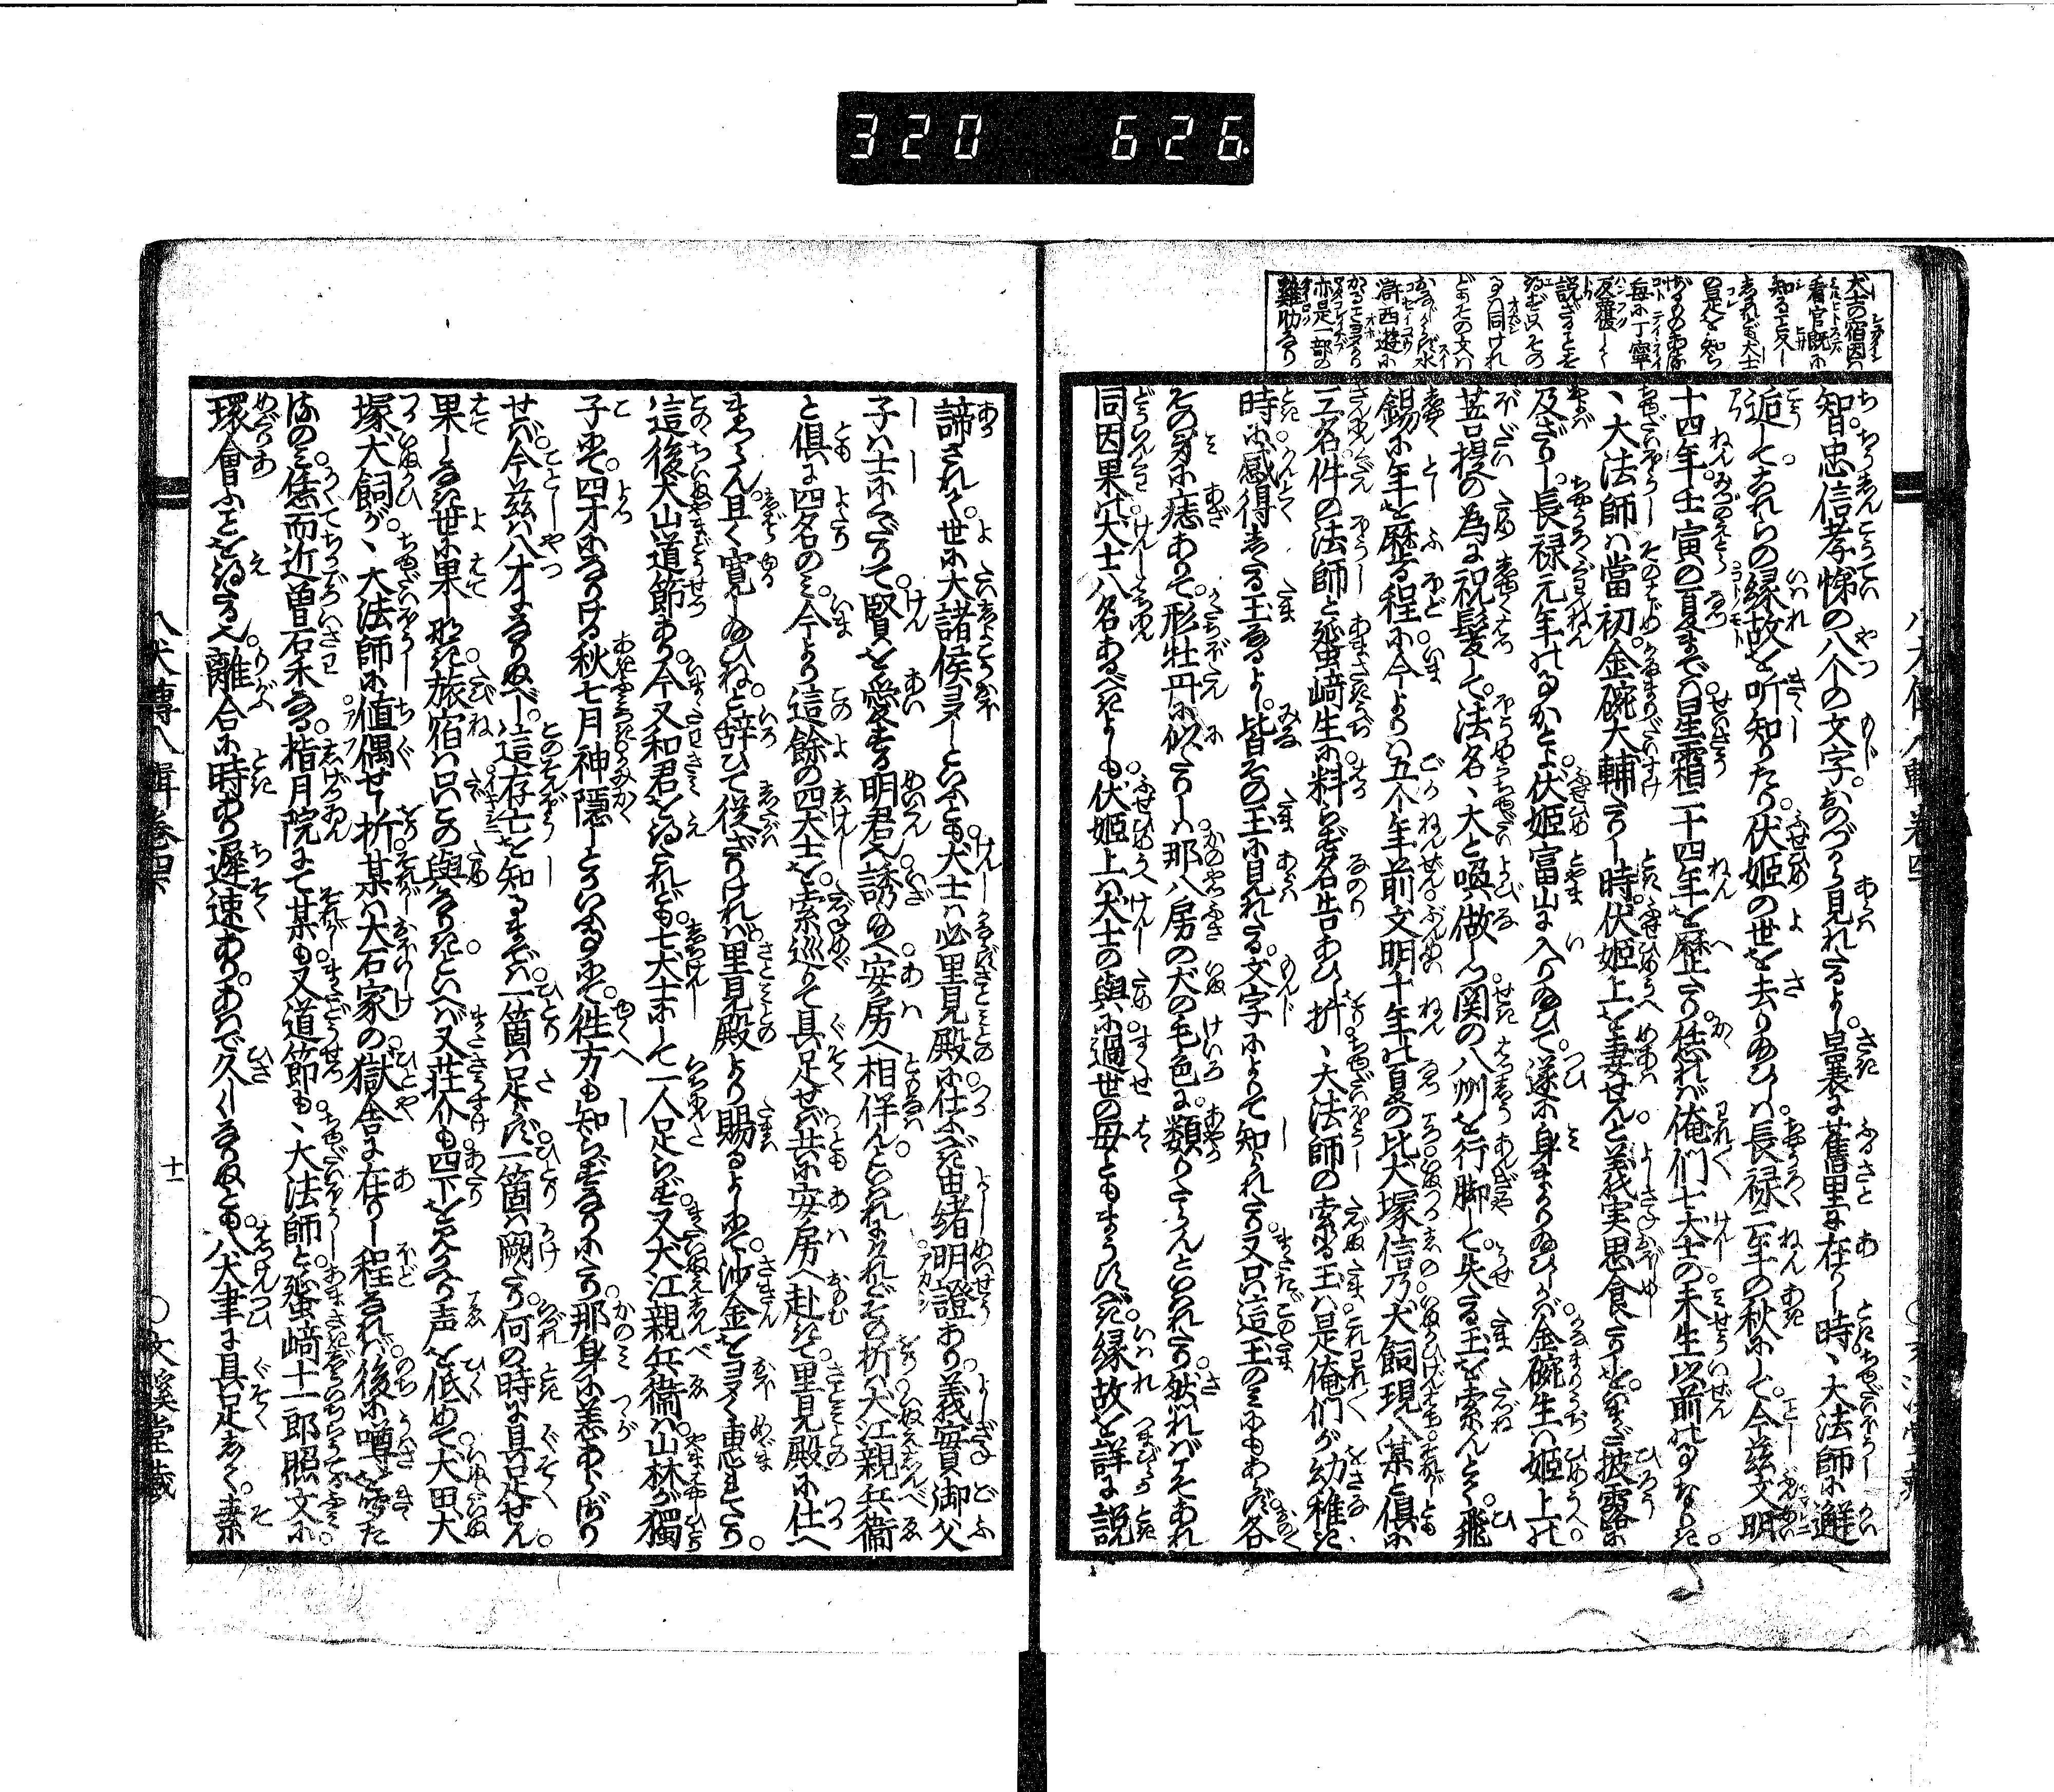 320 626
犬士の宿因ハ
看官既に
知るといへども
毎に丁寧
反覆して
説ざることを
得ず只その
同けれ
どもその文ハ
水
滸西遊に
かゝることあり
亦是一部の
雞肋なり
智忠信孝悌の八个の文字おのづから見れたるよし曩裏に舊里に在りし時ヽ大法師に邂
逅してこれらの縁故を听知りたり伏姫の世を去りたまひしハ長禄二年の秋にして今茲文明
十四年壬寅の夏まで星霜二十四年を歴たり恁れバ俺們七犬士の未生以前の事なりき
ヽ大法師ハ當初金碗大輔たりし時伏姫上を妻せんと義実思食たりしをいまだ披露に
及ざりし長禄元年の事かとよ伏姫富山に入り給ひて遂に身まかり給ひしかバ金碗生ハ姫上の
菩提の為に祝髪して法名ヽ大と喚做しつ関の八州を行脚して失たる玉を索んとて飛
錫に年を歴る程に今よりハ五个年前文明十年の夏の比犬塚信乃犬飼現八某と倶に
三名件の法師と蜑崎生に料らず名告あひし折ヽ大法師の索る玉ハ是俺們が幼稚き
時に感得したる玉なるよし皆その玉に見れたる文字によりて知られたり又只這玉のみにもあらず各
その身に痣ありて形牡丹に似たりしハ那八房の犬の毛色に類りたらんといはれたり然れバこそあれ
同因果の犬士八名あるべきよしも伏姫上ハ犬士の與に過世の母ともまうすべき縁故を詳に説
八犬傳八輯巻四
文溪堂蔵
諦されて世に大諸侯多しといふとも犬士ハ必里見殿に仕ふべき由緒明證あり義實御父
子ハ士にくだりて賢を愛する明君へ誘給へ安房へ相伴んといはれにけれどその折ハ犬江親兵衛
と倶に四名のミ今より這餘の四犬士を索巡りて具足せバ共に安房へ赴きて里見殿に仕へ
まつらん且く寛し給ひねと辞ひて従ざりけれバ里見殿より賜るよしにて沙金を多く恵まれたり
這後犬山道節あり今又和君を得たれども七犬士にして一人足らず又犬江親兵衛ハ山林が獨
子にて四才になりける秋七月神隠しとかいふ事にて徃方も知らずなりにたり那身に恙あらずり
せバ今茲ハ八才になりぬべし這存亡を知るまでハ一箇ハ足らず一箇ハ闕たり何の時に具足せん
果しなき世に果しなき旅宿ハ只この與なりきといへバ又荘介も四下を見かへり声を低めて犬田犬
塚犬飼がヽ大法師に値偶せし折某ハ大石家の獄舎に在りし程なれバ後に噂を听た
るのミ恁而近曽石禾なる指月院にて某も又道節もヽ大法師と蜑崎十一郎照文に
環會ふことを得たり離合に時あり遲速ありあハで久しくなりぬとも八犬士竟に具足して素
八犬傳八輯巻四
十一
文溪堂蔵